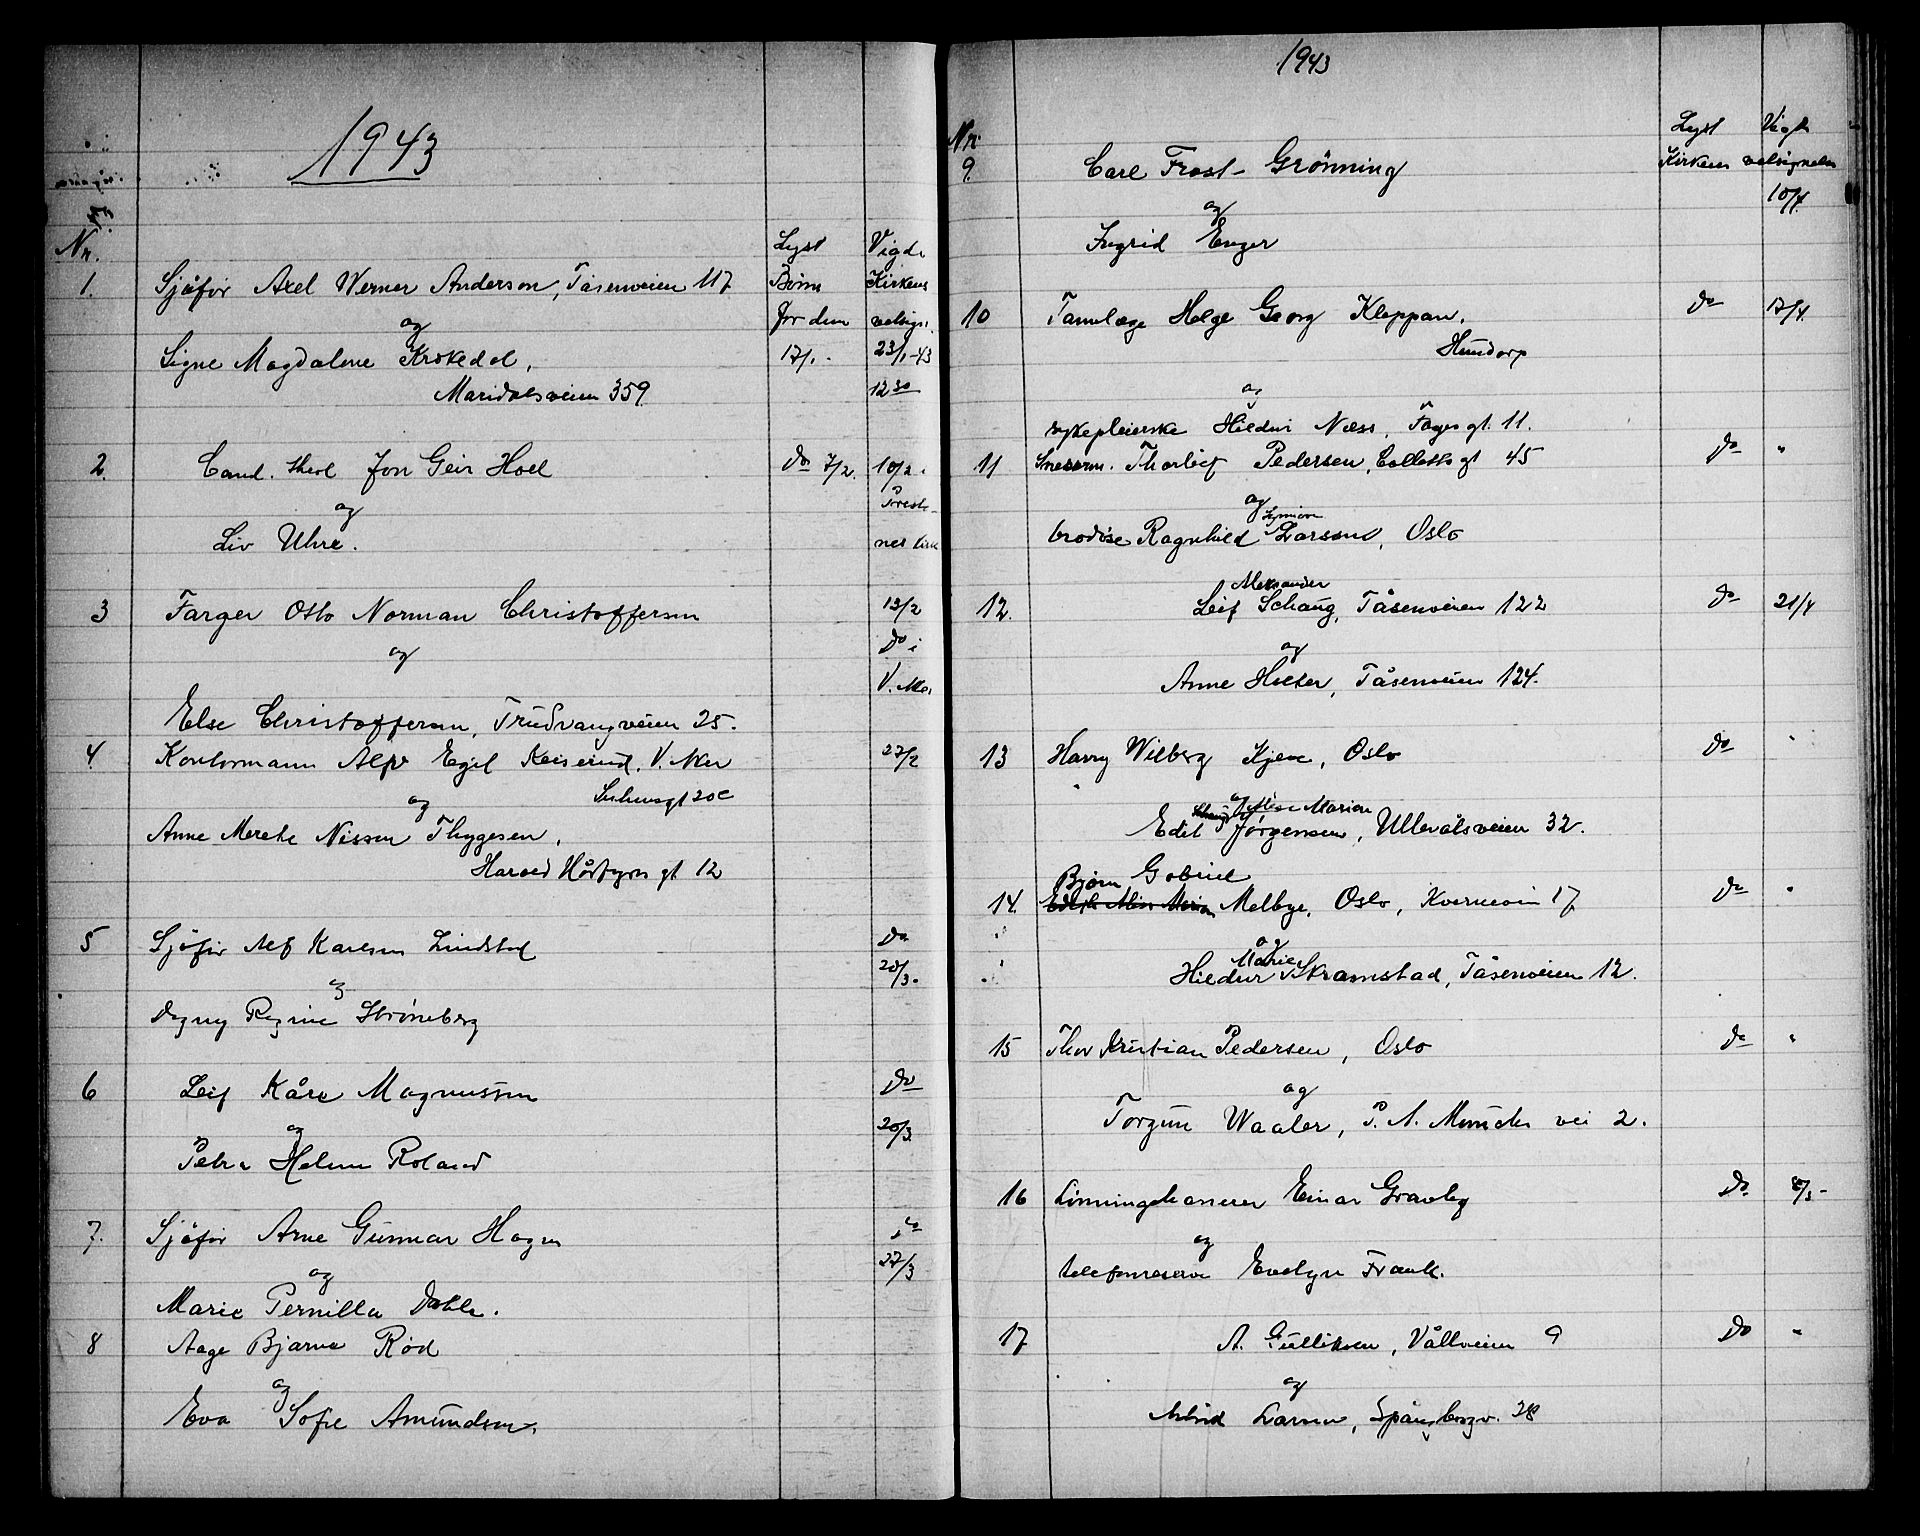 1943
Nr. Lyst Vigde
1. Sjåfør Axel Werner Anderson, Tåsenveien 117 Bønn Kirkens
og for dem velsign.
Signe Magdalene Krokedal, 17/1. 23/1-43
Maridalsveien 359 12 30
2. Cand. theol Jon Geir Hoel do 7/2. 10/2.
og
Liv Uhre.
3 Farger Otto Norman Christoffersen 13/2
og do i
V. Aker
Else Christoffersen, Trudvangveien 25.
4. Kontormann Alf Egil Keiserud, V. Aker 27/2
og
Anne Merete Nissen Thygesen,
Harald Hårfagres gt 12
5 Sjåfør Alf Karlsen Lindstad do
og 20/3.
Dagny Regine Strøneberg
6 Leif Kåre Magnussen do
og 20/3
Petra Helene Roland
7. Sjåfør Arne Gunnar Hagen do
og 27/3
Marie Pernilla Dahle.
8 Aage Bjarne Rød
og
Eva Sofie Amundsen.
1943
Nr. Lyst Vigde
9. Carl Frost-Grønning Kirkens velsignelse
og 10/4.
Ingrid Enger
10 Tannlæge Helge Georg Kleppan, do 17/4.
Hundorp
og
sykepleierske Hildur Næss, Fagergt. 11.
11 Thorleif Pedersen, Colletts gt 45 do "
og
brodøse Ragnhild Larsen, Oslo
Aleksander
12. Leif Schaug, Tåsenveien 122 do 21/4
og
Anne Holter, Tåsenveien 124.
13 Harry Wilberg Kjeve, Oslo do "
og Alise Marion
Edit Jørgensen, Ullevålsveien 32.
Bjørn Gabriel
14. Melbye, Oslo, Kvernveien 17 do "
og
Marie
Hildur Skramstad, Tåsenveien 12.
15 Thor Kristian Pedersen, Oslo do "
og
Torgun Waaler, P. A. Munchs vei 2.
16 Einar Gravley do 8/5-
og
Evelyn Frank.
17 A. Gulliksen, Vållveien 9 do "
og
Astrid Larsen, Spångbergv. 28